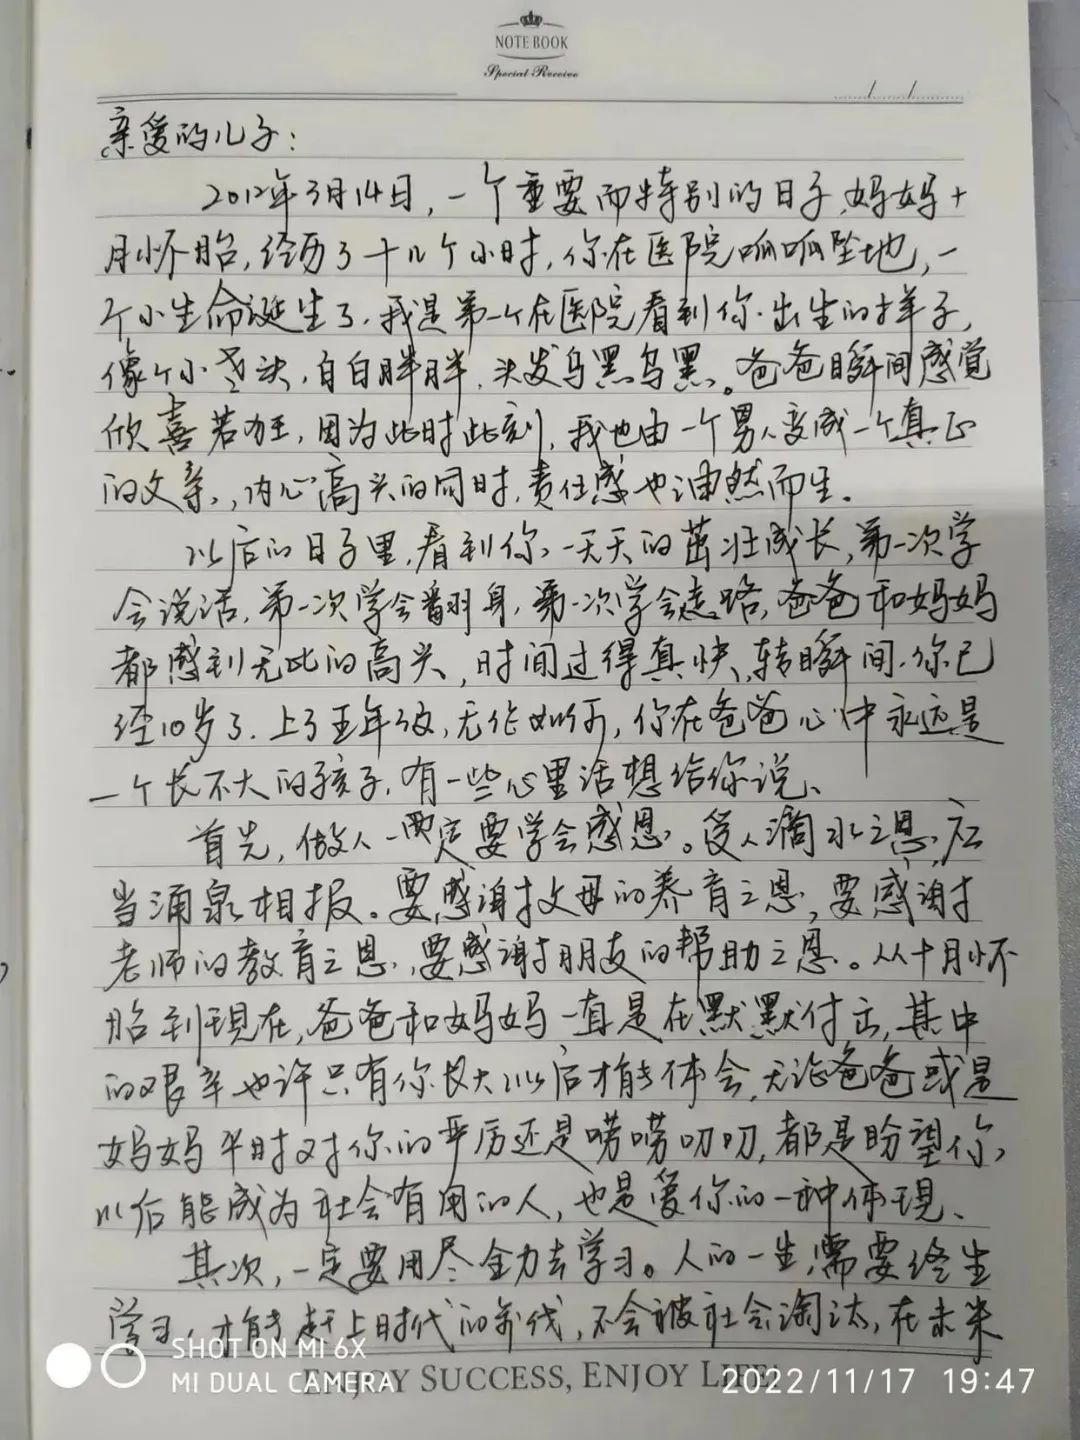 NOTE BOOK
Special Receive
亲爱的儿子：
2012年3月14日，一个重要而特别的日子，妈妈十
月怀胎，经历了十几个小时，你在医院呱呱坠地，一
个小生命诞生了。我是第一个在医院看到你出生的样子，
像个小 白白胖胖，头发乌黑乌黑。爸爸瞬间感觉
欣喜若狂，因为此时此刻，我也由一个男人变成一个真正
的父亲，内心高兴的同时，责任感也油然而生。
以后的日子里，看到你一天天的茁壮成长，第一次学
会说话，第一次学会翻身，第一次学会走路，爸爸和妈妈
都感到无比的高兴，时间过得真快，转瞬间，你已
经10岁了，上了五年级，无论如何，你在爸爸心中永远是
一个长不大的孩子，有一些心里话想给你说、
首先，做人一定要学会感恩。受人滴水之恩，应
当涌泉相报。要感谢父母的养育之恩，要感谢
老师的教育之恩，要感谢朋友的帮助之恩。从十月怀
胎到现在，爸爸和妈妈一直是在默默付出，其中
的艰辛也许只有你长大以后才能体会，无论爸爸或是
妈妈平时对你的严厉还是唠唠叨叨，都是盼望你，
以后能成为社会有用的人，也是爱你的一种体现、
其次，一定要用尽全力去学习。人的一生，需要终生
学习，才能赶上时代的前线，不会被社会淘汰，在未来
SHOT ON MI 6X
MI DUAL CAMERA
ENJOY SUCCESS, ENJOY LIFE!
2022/11/17 19:47